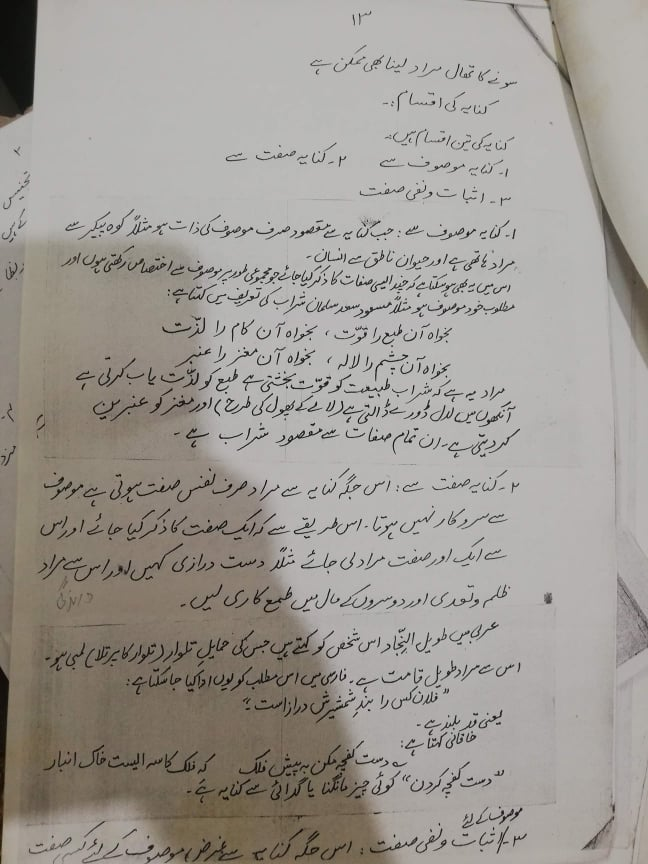 ۱۳
سونے کا تھال مراد لینا بھی ممکن ہے
کنایہ کی اقسام :۔
کنایہ کی تین اقسام ہیں:
۱۔ کنایہ موصوف سے ۲۔ کنایہ صفت سے
۳۔ اثبات و نفی صفت
۱۔ کنایہ موصوف سے : جب کنایہ سے مقصود صرف موصوف کی ذات ہو مثلاً کوہ پیکر سے
مراد ہاتھی ہے اور حیوان ناطق سے انسان ۔
اس میں یہ بھی ہو سکتا ہے کہ چند ایسی صفات کا ذکر کیا جائے جو مجموعی طور پر موصوف سے اختصاص رکھتی ہوں اور
مطلوب خود موصوف ہو مثلاً مسعود سعد سلمان شراب کی تعریف میں کہتا ہے :
بخواہ آن طبع را قوّت ، بخواہ آن کام را لذّت
بخواہ آن چشم را لالہ ، بخواہ آن مغز را عنبر
مراد یہ ہے کہ شراب طبیعت کو قوّت بخشتی ہے طبع کو لذّت یاب کرتی ہے
آنکھوں میں لال ڈورے ڈالتی ہے (لالے کے پھول کی طرح) اور مغز کو عنبرین
کر دیتی ہے ۔ ان تمام صفات سے مقصود شراب ہے ۔
۲۔ کنایہ صفت سے : اس جگہ کنایہ سے مراد صرف نفس صفت ہوتی ہے موصوف
سے سروکار نہیں ہوتا ۔ اس طریقے سے کہ ایک صفت کا ذکر کیا جائے اور اس
سے ایک اور صفت مراد لی جائے مثلاً دست درازی کہیں اور اس سے مراد
ظلم و تعدی اور دوسروں کے مال میں طمع کاری لیں ۔
عربی میں طویل النِّجاد اس شخص کو کہتے ہیں جس کی حمایلِ تلوار (تلوار کا پرتلا) لمبی ہو ۔
اس سے مراد طویل قامت ہے ۔ فارسی میں اس مطلب کو یوں ادا کیا جا سکتا ہے :
"فلان کس را بندِ شمشیرش دراز است"
یعنی قد بلند ہے ۔
خاقانی کہتا ہے :
دست کفچہ مکن بہ پیش فلک کہ فلک کاسہ ایست خاک انبار
"دست کفچہ کردن" کوئی چیز مانگنا یا گدائی سے کنایہ ہے ۔
موصوف کے لئے
۳۔ اثبات و نفی صفت : اس جگہ کنایہ سے غرض موصوف کے لئے کسی صفت